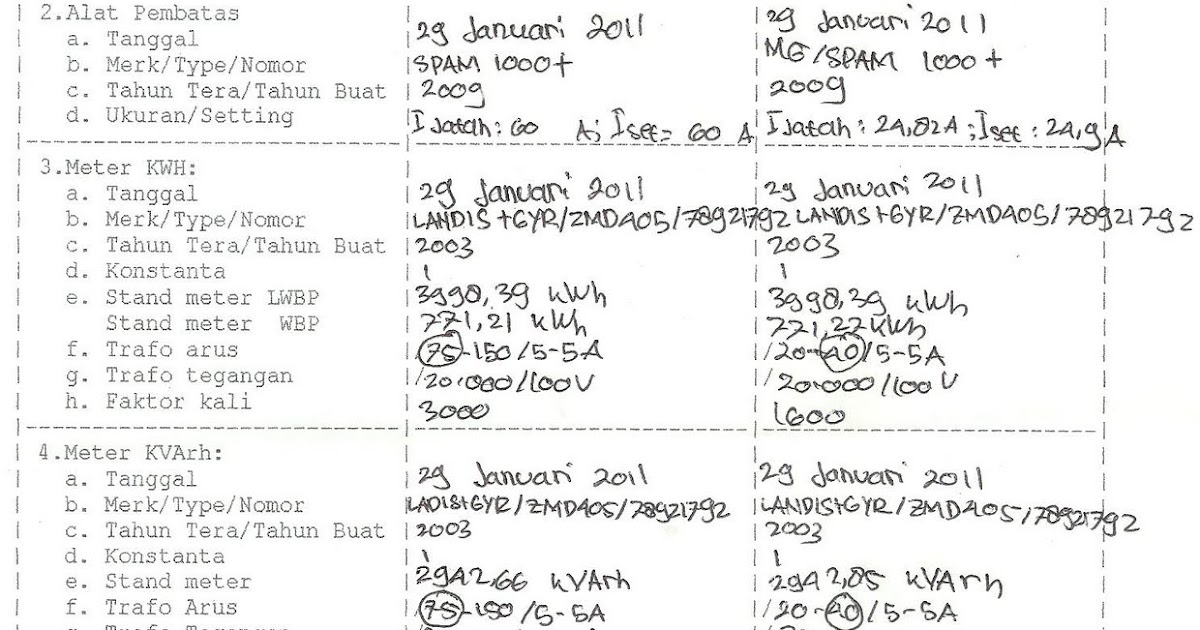 2.Alat Pembatas
a. Tanggal 29 Januari 2011 29 Januari 2011
b. Merk/Type/Nomor SPAM 1000+ MG/SPAM 1000+
c. Tahun Tera/Tahun Buat 2009 2009
d. Ukuran/Setting I Jatah: 60 A; Iset= 60 A I Jatah: 24,82A; Iset: 24,9 A
3.Meter KWH:
a. Tanggal 29 Januari 2011 29 Januari 2011
b. Merk/Type/Nomor LANDIS+GYR/ZMD405/78921792 LANDIS+GYR/ZMD405/78921792
c. Tahun Tera/Tahun Buat 2003 2003
d. Konstanta 1 1
e. Stand meter LWBP 3998,39 kWh 3998,39 kWh
Stand meter WBP 771,21 kWh 771,22 kWh
f. Trafo arus 75-150/5-5A 20-40/5-5A
g. Trafo tegangan 20.000/100V 20.000/100V
h. Faktor kali 3000 1600
4.Meter KVArh:
a. Tanggal 29 Januari 2011 29 Januari 2011
b. Merk/Type/Nomor LADIS+GYR/ZMD405/78921792 LANDIS+GYR/ZMD405/78921792
c. Tahun Tera/Tahun Buat 2003 2003
d. Konstanta 1 1
e. Stand meter 2942,66 kVArh 2942,85 kVArh
f. Trafo Arus 75-150/5-5A 20-40/5-5A